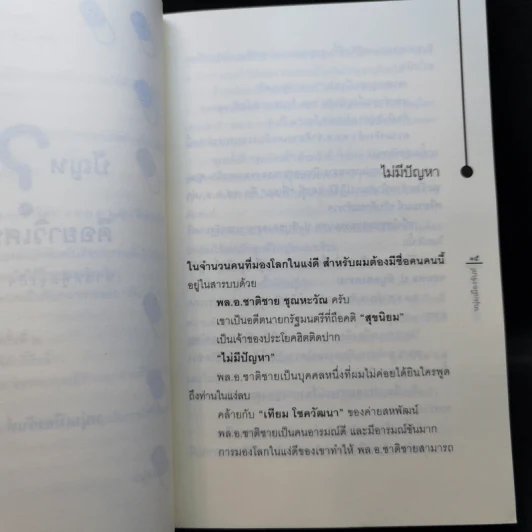 ไม่มีปัญหา
ในจำนวนคนที่มองโลกในแง่ดี สำหรับผมต้องมีชื่อคนคนนี้
อยู่ในสารบบด้วย
พล.อ.ชาติชาย ชุณหะวัณ ครับ
เขาเป็นอดีตนายกรัฐมนตรีที่ถือคติ "สุขนิยม"
เป็นเจ้าของประโยคฮิตติดปาก
"ไม่มีปัญหา"
พล.อ.ชาติชายเป็นบุคคลหนึ่งที่ผมไม่ค่อยได้ยินใครพูด
ถึงท่านในแง่ลบ
คล้ายกับ "เทียม โชควัฒนา" ของค่ายสหพัฒน์
พล.อ.ชาติชายเป็นคนอารมณ์ดี และมีอารมณ์ขันมาก
การมองโลกในแง่ดีของเขาทำให้ พล.อ.ชาติชายสามารถ
หนุ่มเมืองจันท์